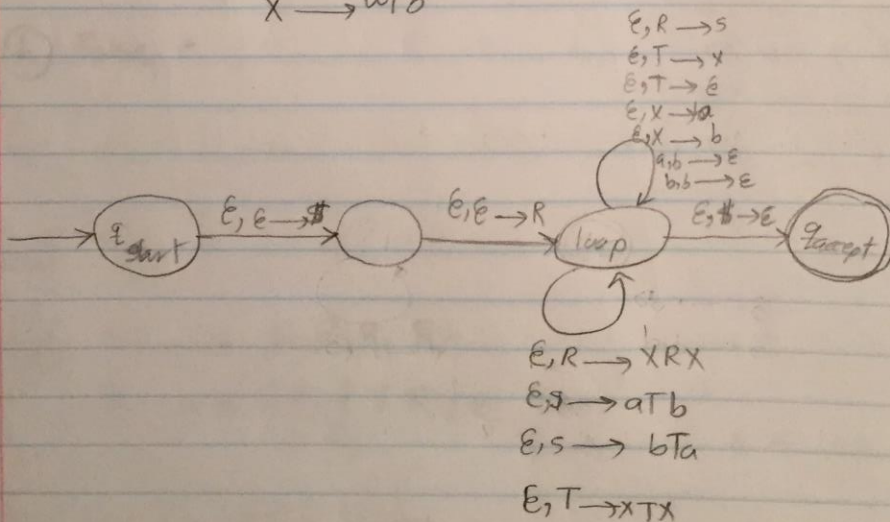 X → a|b
ε, R → s
ε, T → x
ε, T → ε
ε, x → a
ε, x → b
a, b → ε
b, b → ε
q start
ε, ε → $
ε, ε → R
loop
ε, $ → ε
q accept
ε, R → XRX
ε, s → aTb
ε, s → bTa
ε, T → XTX